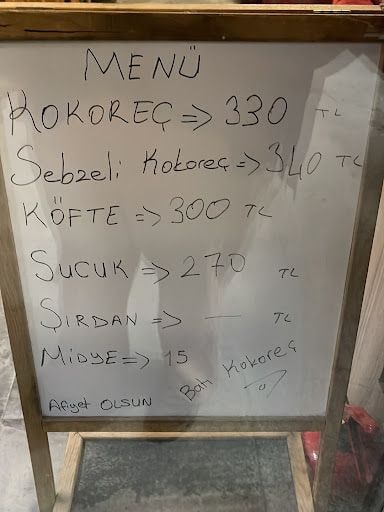 MENÜ
KOKOREÇ => 330 TL
Sebzeli Kokoreç => 340 TL
KÖFTE => 300 TL
SUCUK => 270 TL
ŞIRDAN => — TL
MİDYE => 15
Afiyet OLSUN
Batı Kokoreç